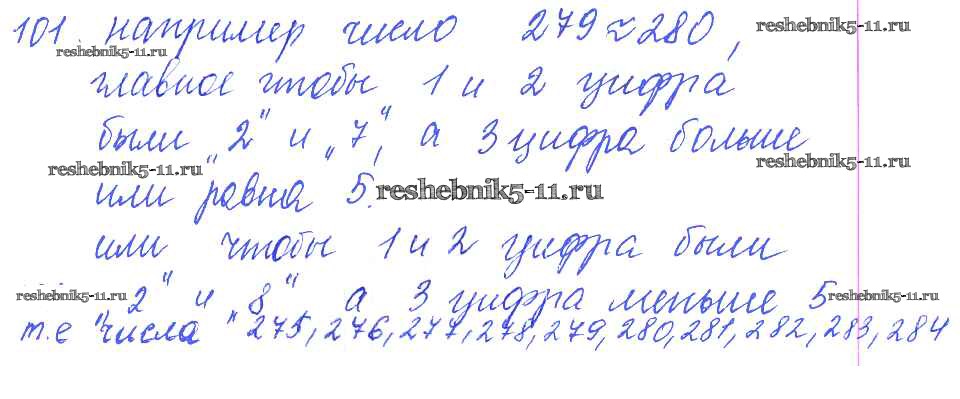 101. например число 279≈280,
reshebnik5-11.ru
reshebnik5-11.ru
главное чтобы 1 и 2 цифра
были „2" и „7", а 3 цифра больше
reshebnik5-11.ru
reshebnik5-11.ru
или равна 5.
reshebnik5-11.ru
или чтобы 1 и 2 цифра были
"2" и "8" а 3 цифра меньше 5
reshebnik5-11.ru
reshebnik5-11.ru
т.е числа 275, 276, 277, 278, 279, 280, 281, 282, 283, 284